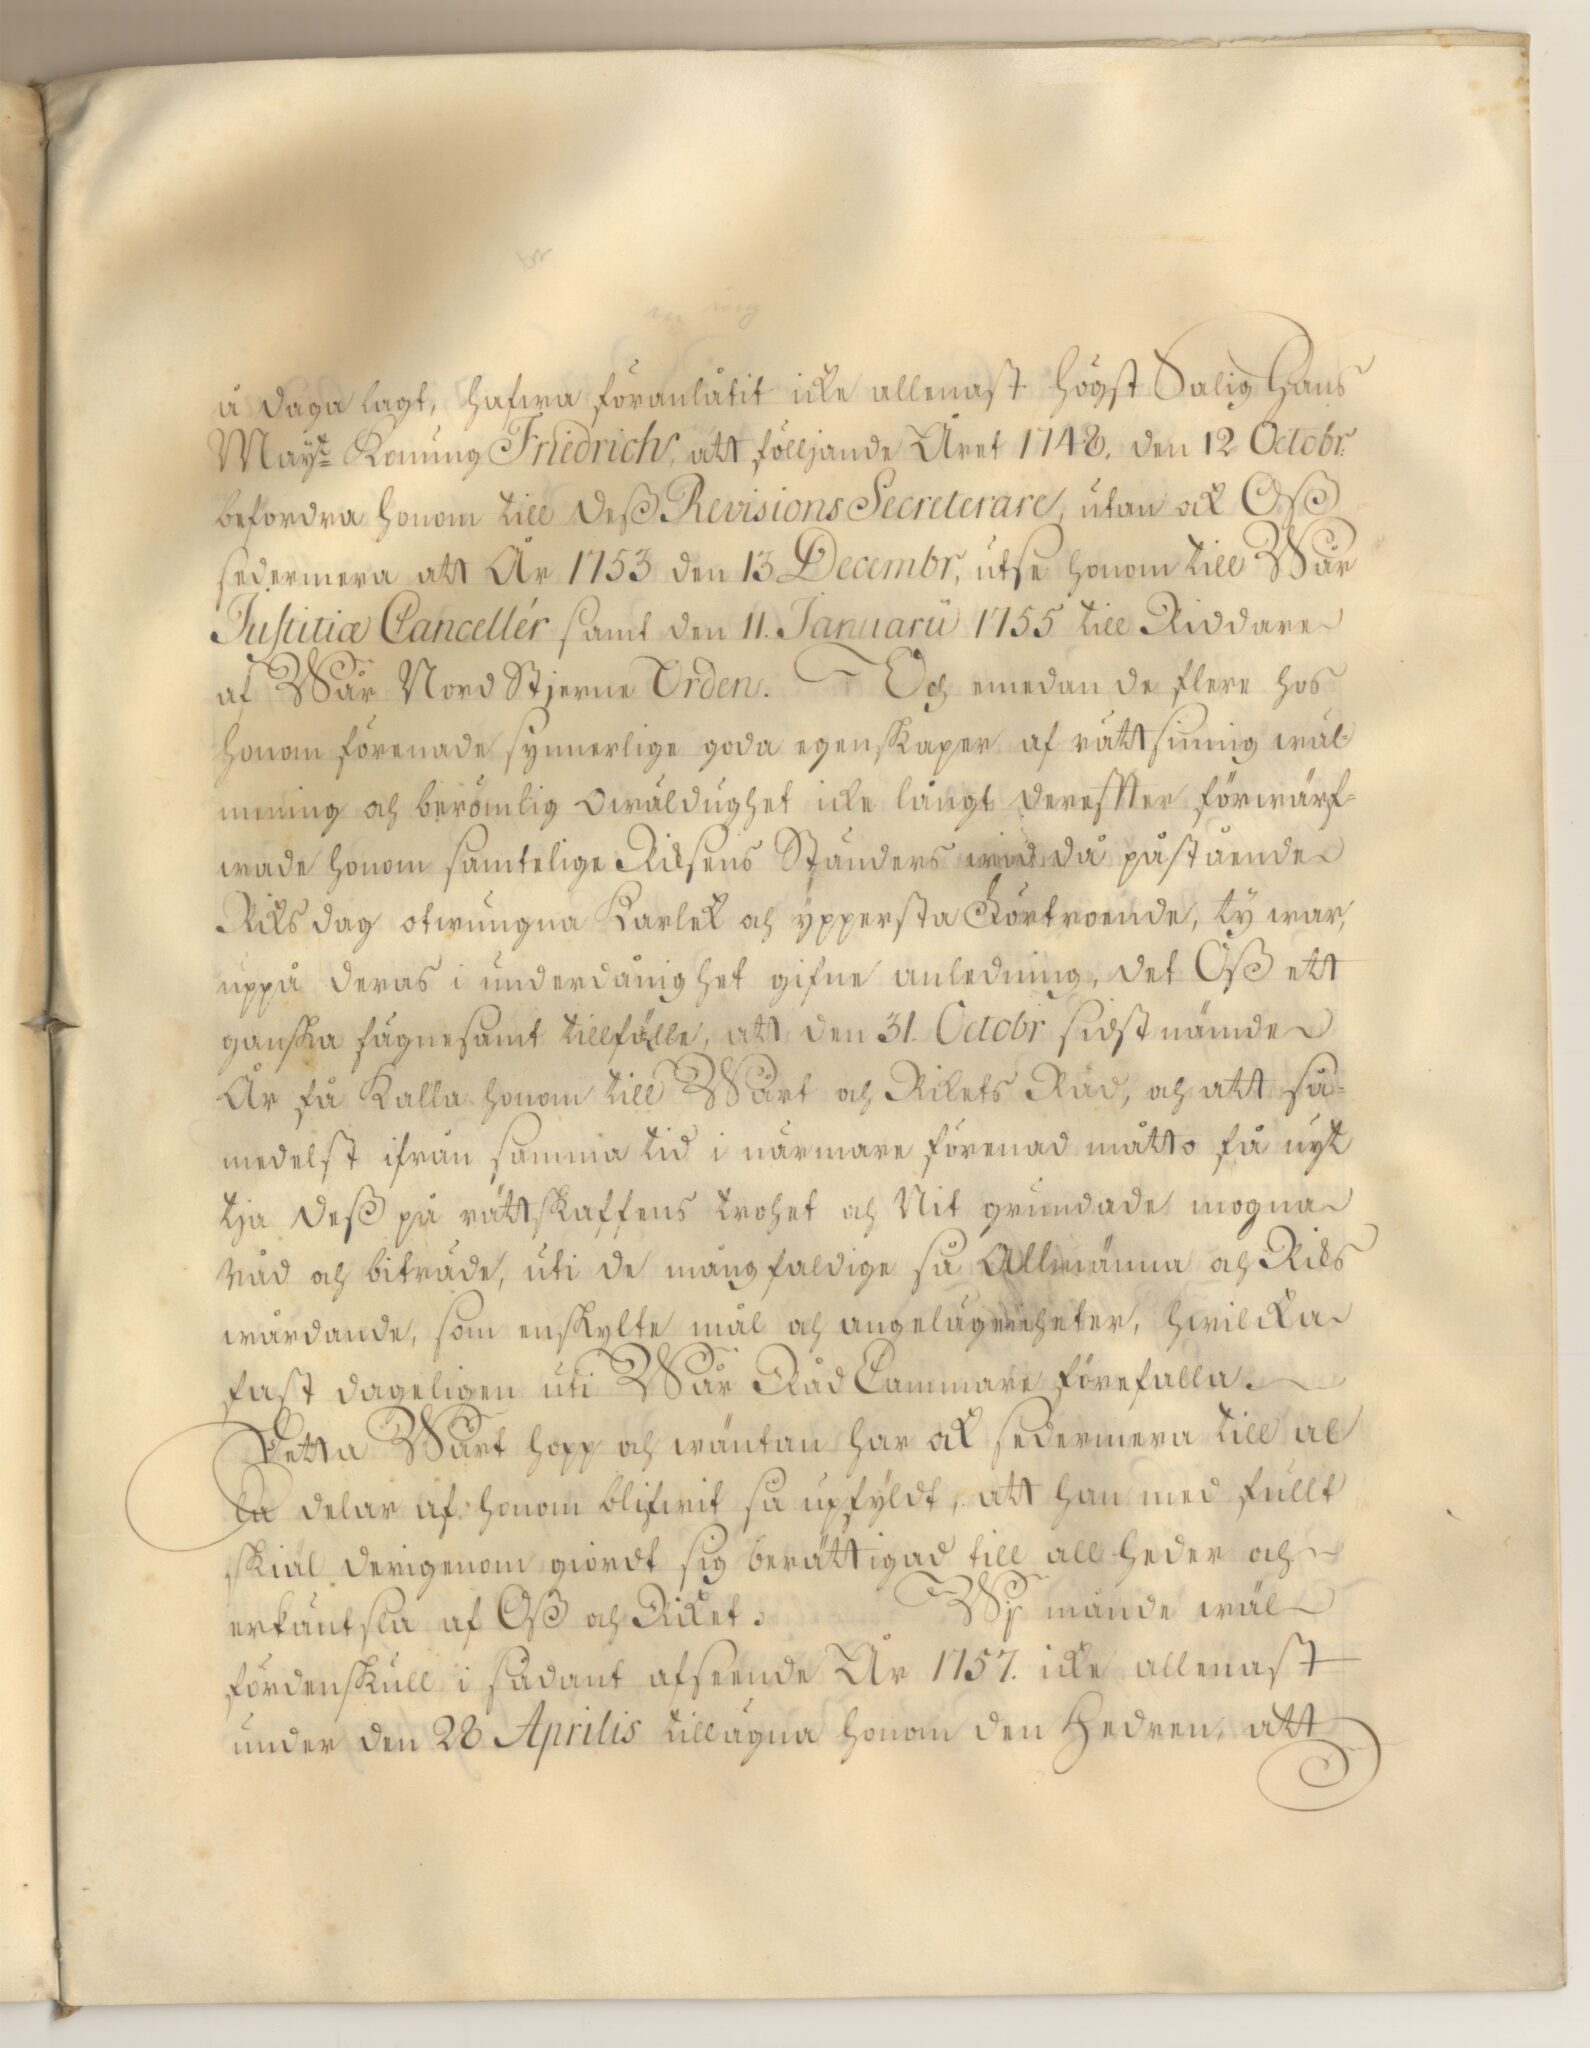 å daga lagt, hafwa föranlåtit icke allenast Högst Salig Hans
May:tt Konung Friedrich, att följjande Året 1748. den 12 Octobr:
befordra honom till Deß Revisions Secreterare, utan ock Oß
sedermera att År 1753 den 13 Decembr, utse honom till Wår
Justitiæ Cancellér samt den 11. Januarii 1755 till Riddare
af Wår Nord Stjerne Orden. Och emedan de flere hos
honom förenade synnerlige goda egenskaper af rättsinnig wäl-
mening och berömlig Owäldughet icke långt derefter förwärf-
wade honom samtelige Riksens Ständers wid då påstående
Riksdag otwungna Karlek och ÿppersta Förtroende, tÿ war,
uppå deras i underdånighet gifne anledning, det Oß ett
ganska fägnesamt tillfälle, att den 31. Octobr sidstnämde
År få Kalla honom till Wårt och Rikets Råd, och att så-
medelst ifrån samma tid i närmare förenad måtto få nyt
tja Deß på rättskaffens trohet och Nit grundade mogna
råd och biträde, uti de mångfaldige så Allmänna och Riks
wårdande, som enskylte mål och angelägenheter, hwilcka
fast dageligen uti Wår Råd Cammare förefalla.
Detta Wårt hopp och wäntan har ock sedermera till al
la delar af honom blifwit så upfyldt, att han med fullt
skiäl derigenom giordt sig berättigad till all heder och
erkäntsla af Oß och Riket. Wj månde wäl
fördenskull i sådant afseende År 1757. icke allenast
under den 28 Aprilis tillägna honom den Hedren, att